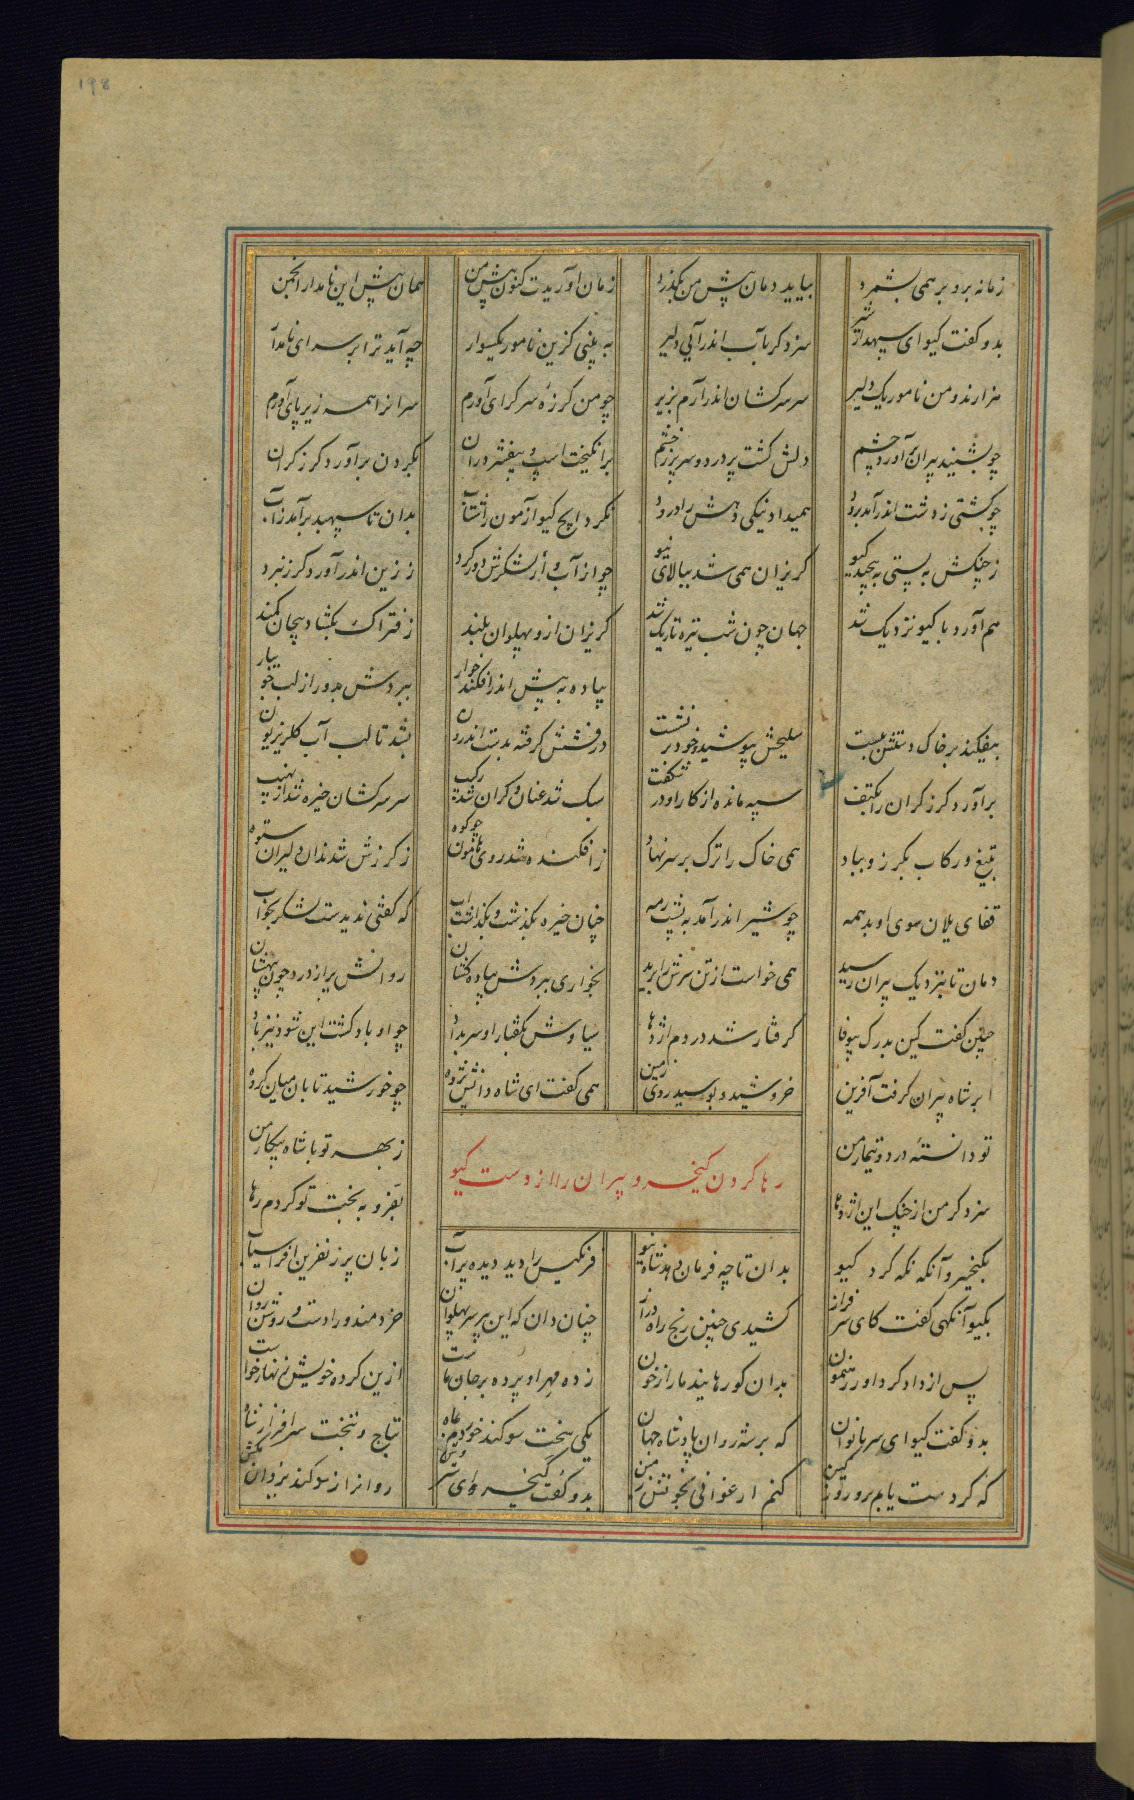 ۱۹۸
زمانه برو بر همی بشمرد بیاید دمان پیش من بگذرد زمان آوریدت کنون پیش من همان پیش این نامدار انجمن
بدو گفت گیو ای سپهدار شیر سزد گر بآب اندر آیی دلیر به بینی کزین نامور یکسوار چه آید ترا بر سر ای نامدار
هزارند و من نامور یک دلیر سر سرکشان اندر آرم بزیر چو من گرزهٔ سرگرای آورم سرانرا همه زیر پای آورم
چو بشنید پیران برآورد خشم دلش گشت پر درد و سر پر ز خشم برانگیخت اسپ و بیفشرد ران بگردن برآورد گرز گران
چو کشتی ز دشت اندر آمد برود همیداد نیکی دهش را درود نکرد ایچ گیو آزمون را شتاب بدان تا سپهبد برآمد ز آب
ز جنگش به پستی به پیچید گیو گریزان همی شد ببالای نیو چو از آب و از لشکرش دور کرد ز زین اندر آورد گرز نبرد
هم آورد با گیو نزدیک شد جهان چون شب تیره تاریک شد گریزان ازو پهلوان بلند ز فتراک بگشاد پیچان کمند
پیاده به پیش اندر افکند خوار ببردش بدور از لب جویبار
بیفکند بر خاک و دستش ببست سلیحش بپوشید و خود بر نشست درفشش گرفته بدست اندرون بشد تا لب آب گلزریون
برآورد گرز گران را بکتف سپه مانده از کار او در شگفت سبک شد عنان و گران شد رکیب سر سرکشان خیره شد از نهیب
بتیغ و رکاب بگرز و بباد همی خاک را ترک بر سر نهاد ز افکنده شد روی هامون چو کوه ز گرزش شدند آن دلیران ستوه
قفای یلان سوی او بد همه چو شیر اندر آمد به پشت رمه چنان خیره بگذشت و بگذاشت آب که گفتی ندیدست لشکر بخواب
دمان تا بنزدیک پیران رسید همی خواست از تن سرش را برید بخواری ببردش پیاده کشان روانش پر از درد چون بیهشان
چنین گفت کین بدرگ بیوفا گرفتار شد در دم اژدها سیاوش بگفتار او سر بداد چو او باد گشت این شود نیز باد
ابر شاه پیران گرفت آفرین خروشید و بوسید روی زمین همی گفت ای شاه دانش پژوه چو خورشید تابان میان گروه
تو دانستهٔ درد و تیمار من ز بهر تو با شاه پیکار من
رها کردن کیخسرو پیران را از دست گیو
سزد گر من از چنگ این اژدها بفر و به بخت تو گردم رها
بکیخسرو آنگه نگه کرد گیو بدان تا چه فرمان دهد شاه نیو فرنگیس را دید دیده پر آب زبان پر ز نفرین افراسیاب
بگیو آنگهی گفت کای سرفراز کشیدی چنین رنج راه دراز چنان دان که این پیر سر پهلوان خردمند و رادست و روشن روان
پس از دادگر داور رهنمون بدان کو رهانید ما را ز خون زده مهر او پرده بر جان ماست ازین کرده خویش زنهار خواست
بدو گفت گیو ای سر بانوان که برشه روان پادشاه جهان یکی سخت سوگند خوردم بماه بتاج و بتخت سرافراز شاه
که گر دست یابم برو روز کین کنم ارغوانی بخونش زمین بدو گفت کیخسرو ای شیر وش روانرا ز سوگند یزدان بکش